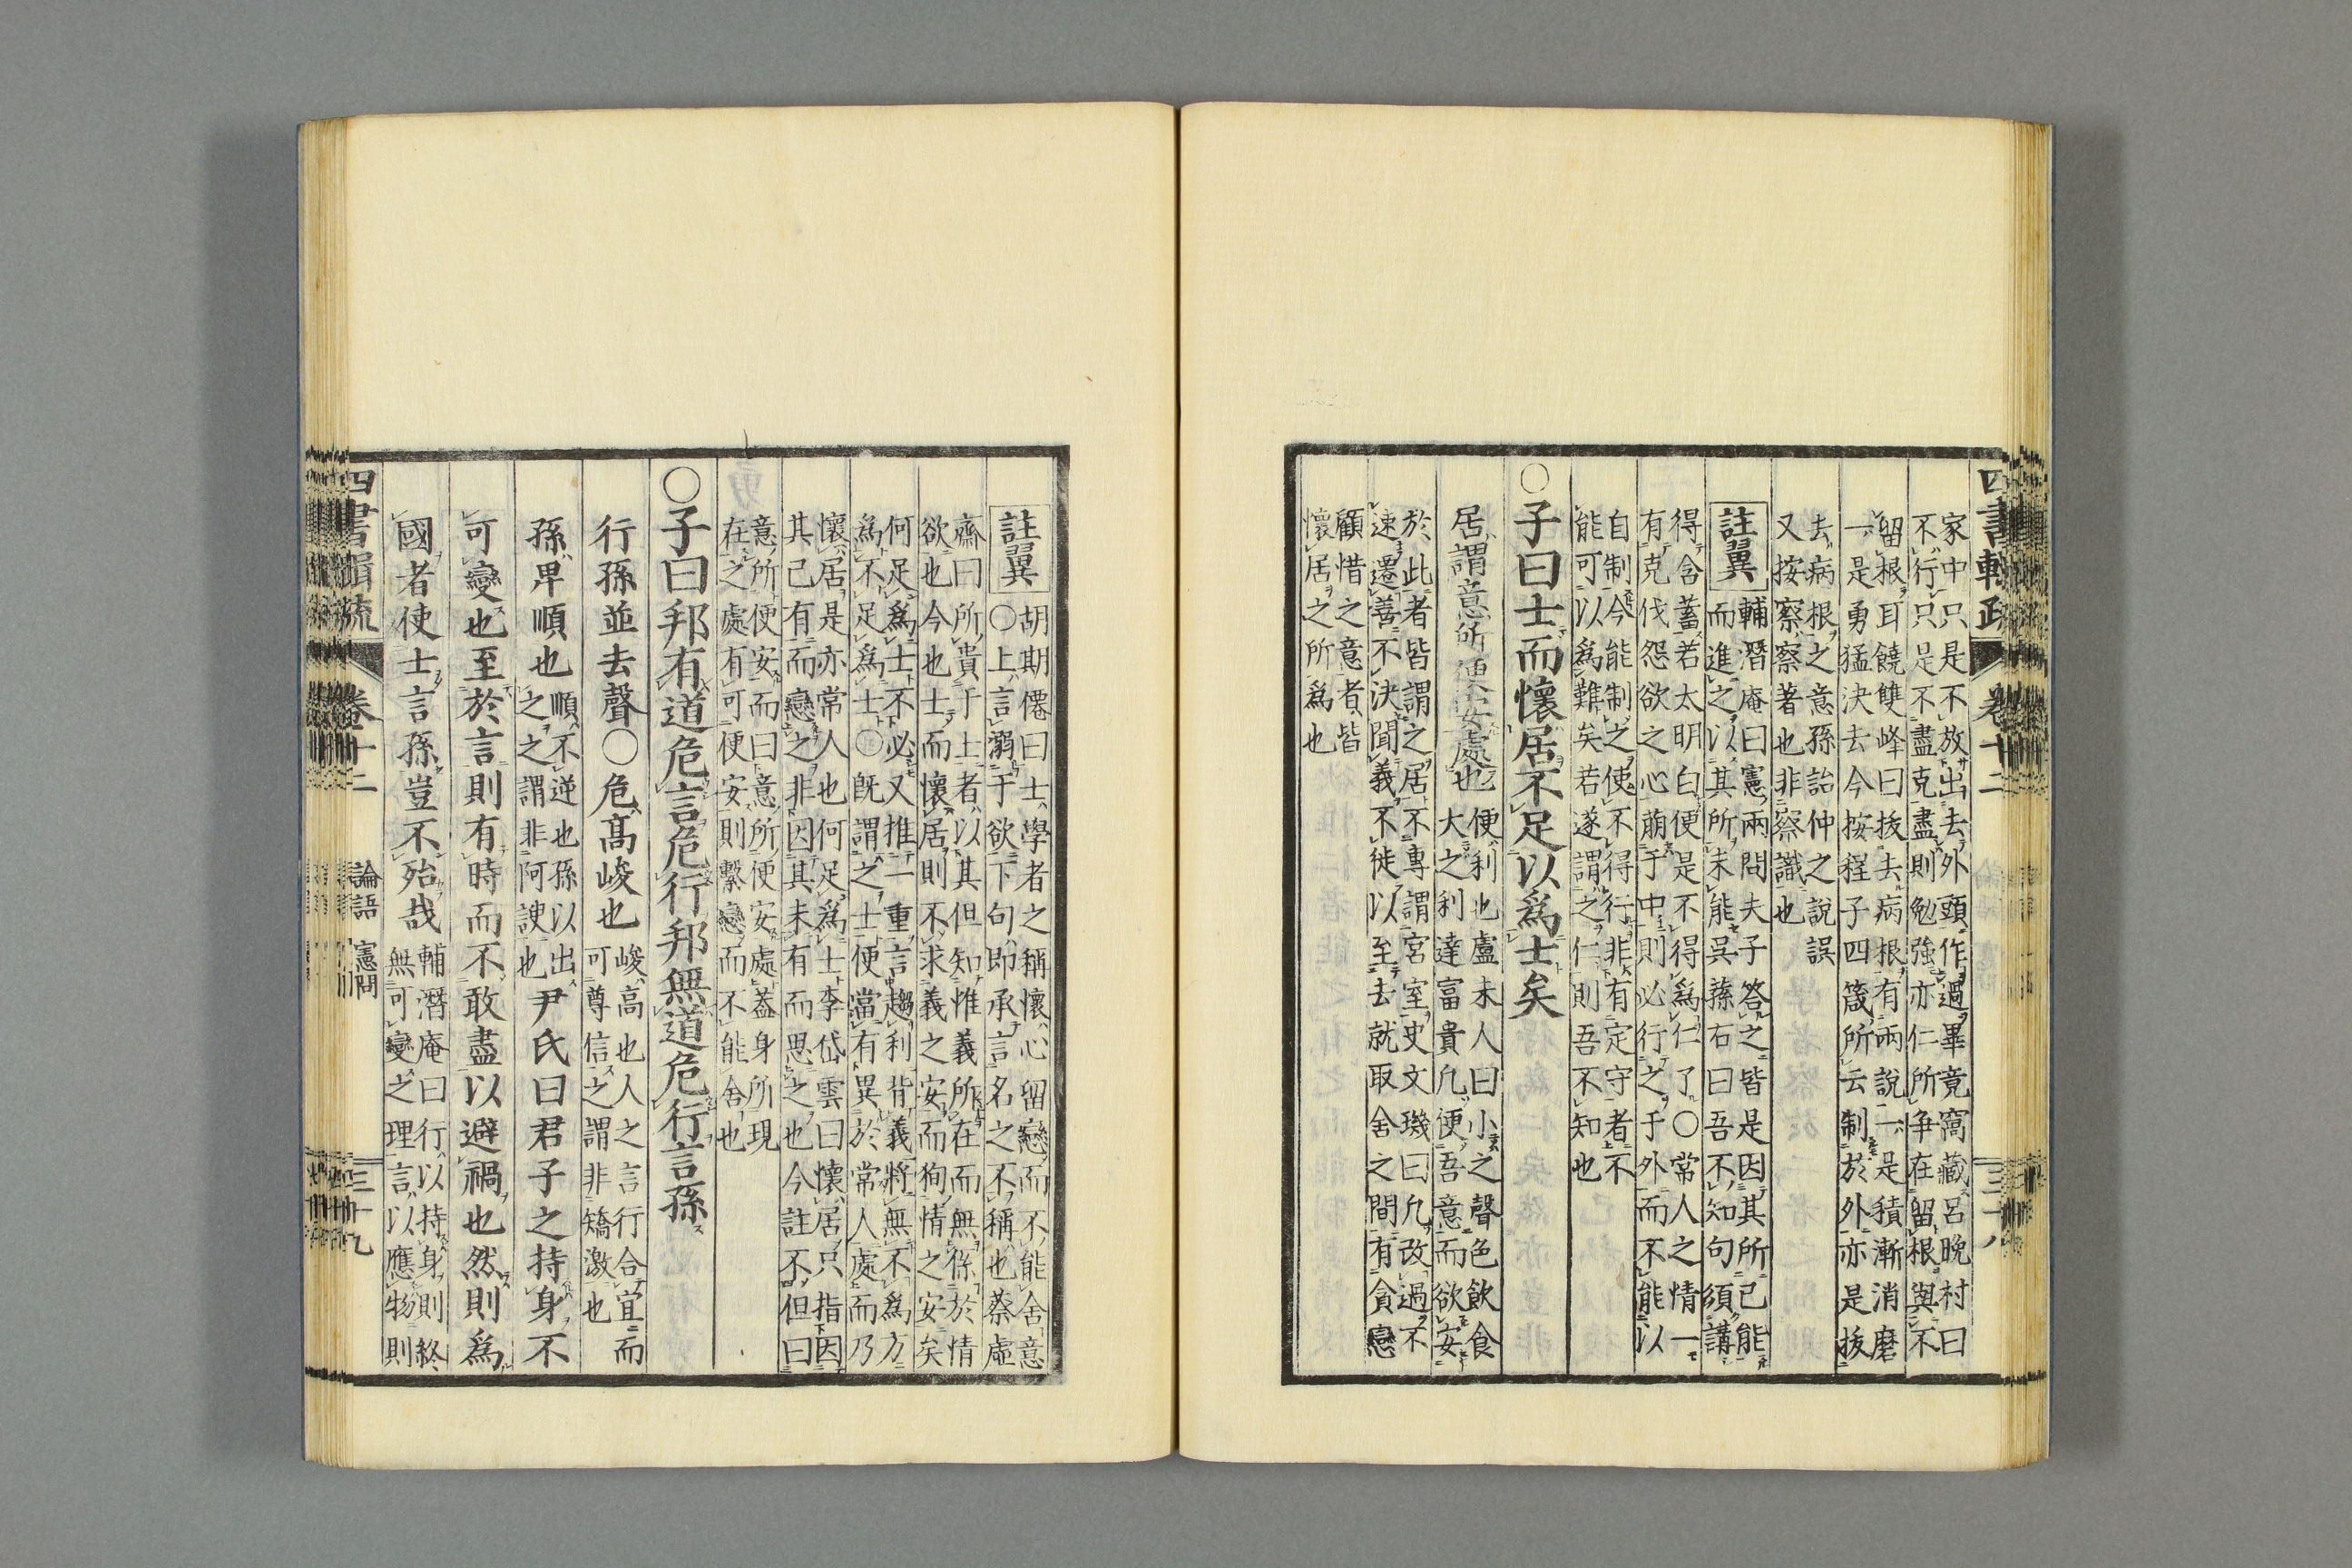 家中只是不放出去外頭作過畢竟窩藏呂晩村曰
不行只是不盡克盡則勉強亦仁所争在留根與不
留根耳饒雙峰曰拔去病根有兩説一是積漸消磨
一是勇猛決去今按程子四箴所云制於外亦是拔
去病根之意孫詒仲之説誤
又按察察著也非察識也
註翼
輔潛庵曰憲兩問夫子答之皆是因其所已能
而進之以其所未能呉蓀右曰吾不知句須講
得含蓄若太明白便是不得爲仁了○常人之情一
有克伐怨欲之心萠于中則必行之于外而不能以
自制今能制之使不得行非有定守者不
能可以爲難矣若遂謂之仁則吾不知也
○子曰士而懷居不足以爲士矣
居謂意所便安處也
便利也盧未人曰小之聲色飲食
大之利達富貴凡便吾意而欲安
於此者皆謂之居不專謂宮室史文璣曰凡改過不
速遷善不決聞義不徙以至去就取舍之間有貪戀
顧惜之意者皆
懷居之所爲也
四書輯疏
卷十二
三十八
註翼
胡期僊曰士學者之稱懷心留戀而不能舍意
○上言溺于欲下句即承言名之不稱也蔡虚
齋曰所貴于士者以其但知惟義所在而無係於情
欲也今也士而懷居則不求義之安而狥情之安矣
何足爲士不必又推一重言趨利背義將無不爲方
爲不足爲士○旣謂之士便當有異於常人處而乃
懷居是亦常人也何足爲士李岱雲曰懷居只指因
其已有而戀之非因其未有而思之也今註不但曰
意所便安而曰意所便安處葢身所現
在之處有可便安則繫戀而不能舍也
○子曰邦有道危言危行邦無道危行言孫
行孫並去聲○危髙峻也
峻高也人之言行合宜而
可尊信之謂非矯激也
孫卑順也
順不逆也孫以出
之之謂非阿諛也
尹氏曰君子之持身不
可變也至於言則有時而不敢盡以避禍也然則爲
國者使士言孫豈不殆哉
輔潛庵曰行以持身則終
無可變之理言以應物則
四書輯疏
卷十二
論語 憲問
三十九